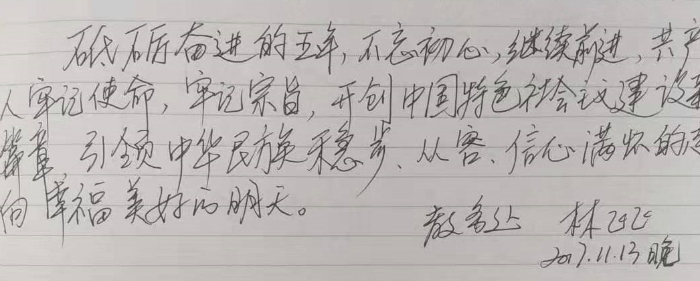 砥砺奋进的五年,不忘初心,继续前进,共产
人牢记使命,牢记宗旨,开创中国特色社会主义建设
篇章 引领中华民族稳步、从容、信心满怀的
向幸福美好的明天。
教务处 林
2017.11.13晚